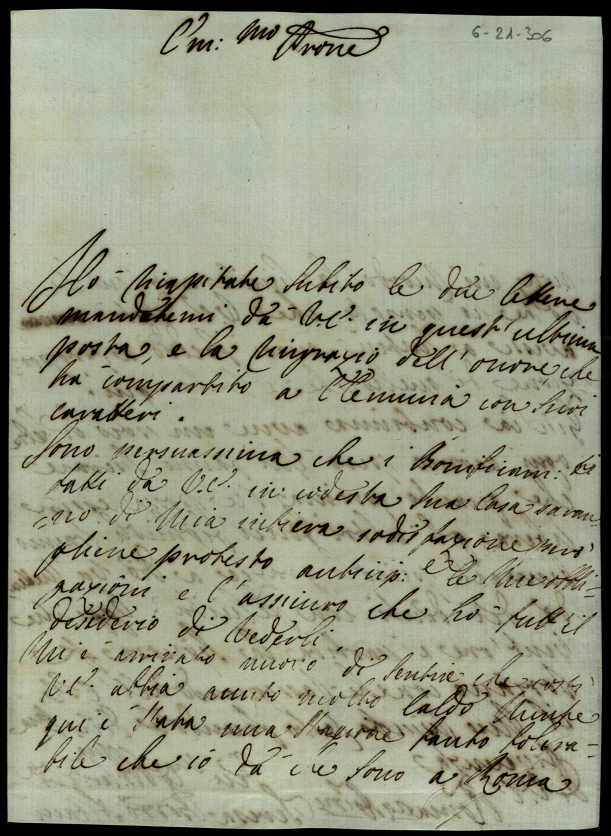 6-21-306
C. mo Prone
Hò ricapitate subito le due lettere
mandatemi da V.E. in quest'ultima
posta, e la ringrazio dell'onore che
hà compartito a Clemuna con suoi
caratteri.
Sono persuasissima che i Bonificam: ti
fatti da V.E. in codesta sua Casa saran
=no di mia intiera sodisfazione ma
gliene protesto antecip: e le mie obbli=
gazioni e l'assicuro che hò tutt'il
desiderio di vederli.
Mi è arrivato nuovo di sentire che costì
V.E. abbia avuto molto caldo mentre
qui è stata una stagione tanto tolera=
bile che io da che sono a Roma